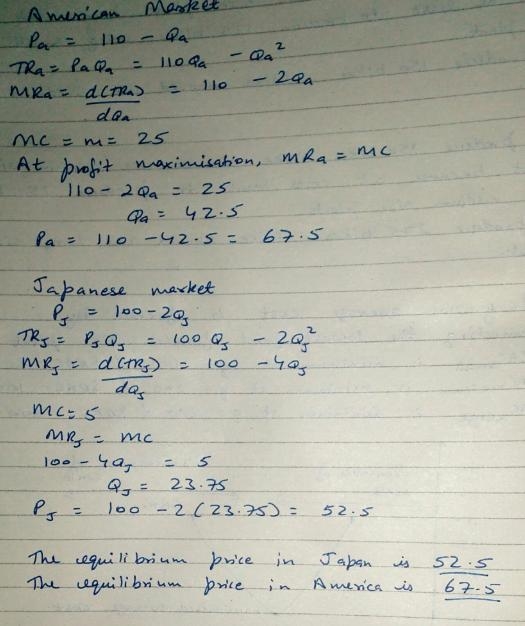 American Market
Pa = 110 - Qa
TRa = PaQa = 110Qa - Qa²
MRa = d(TRa)/dQa = 110 - 2Qa
MC = m = 25
At profit maximisation, MRa = MC
110 - 2Qa = 25
Qa = 42.5
Pa = 110 - 42.5 = 67.5
Japanese market
PJ = 100 - 2QJ
TRJ = PJQJ = 100QJ - 2QJ²
MRJ = d(TRJ)/dQJ = 100 - 4QJ
MC = 5
MRJ = MC
100 - 4QJ = 5
QJ = 23.75
PJ = 100 - 2(23.75) = 52.5
The equilibrium price in Japan is 52.5
The equilibrium price in America is 67.5